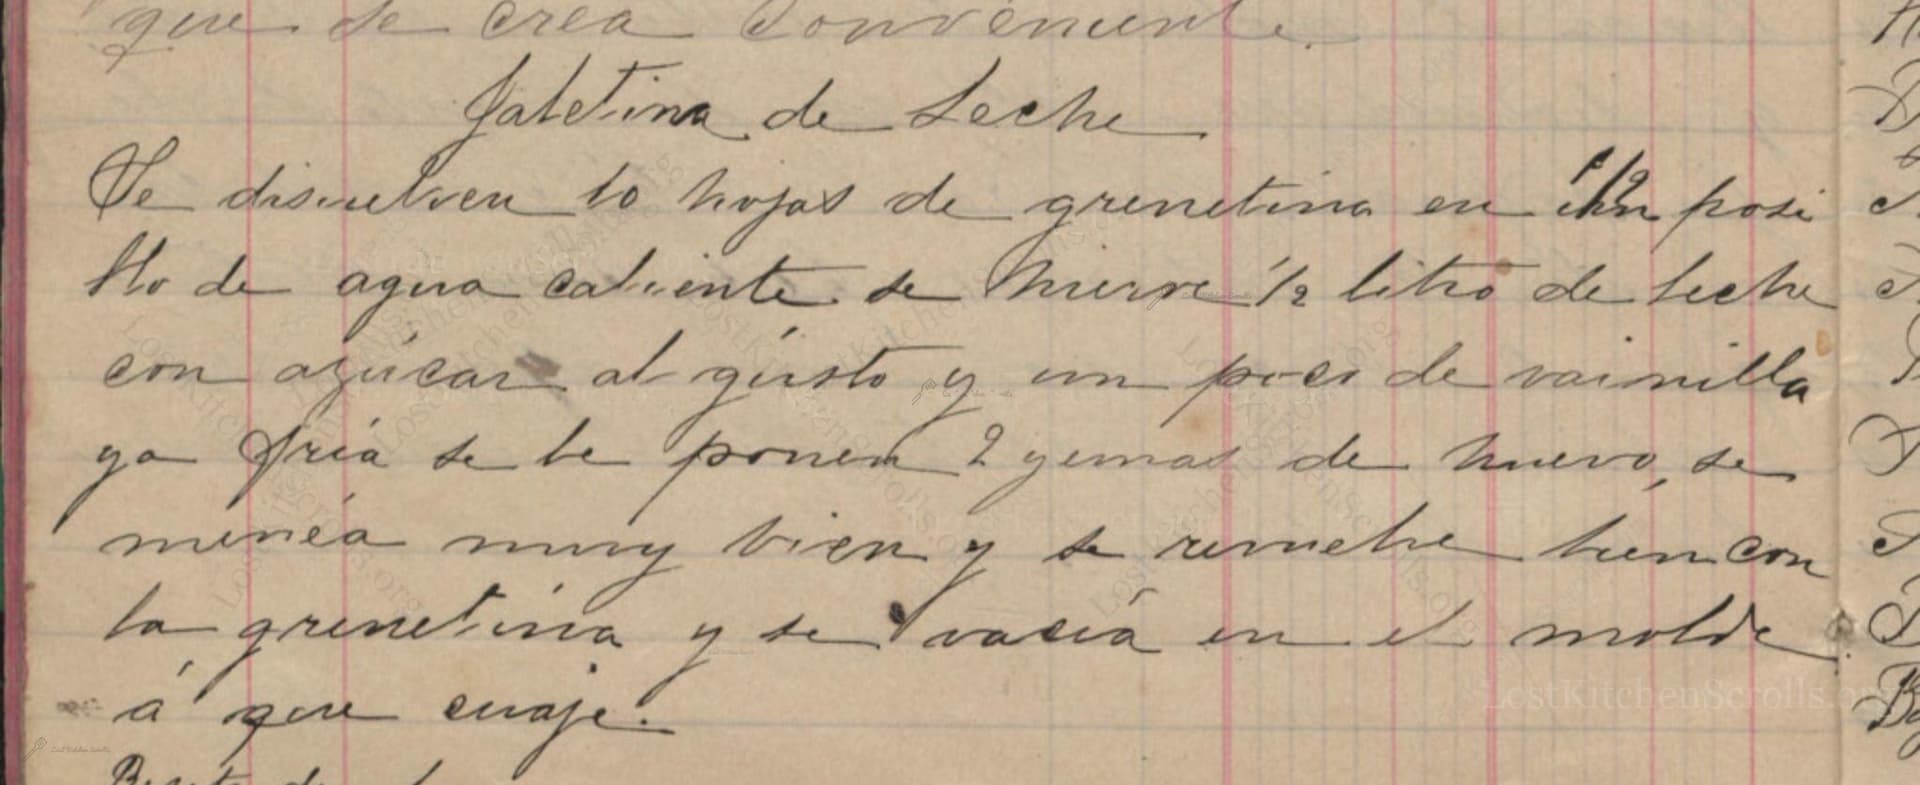 que se crea conveniente.
Jaletina de Leche
Se disuelven 10 hojas de grenetina en 1/2 posi
llo de agua caliente se hierve 1/2 litro de leche
con azúcar al gusto y un poco de vainilla
ya fría se le ponen 2 yemas de huevo, se
menéa muy bien y se revuelve bien con
la grenetina y se vacía en el molde
á que cuaje.
LostKitchenScrolls.org